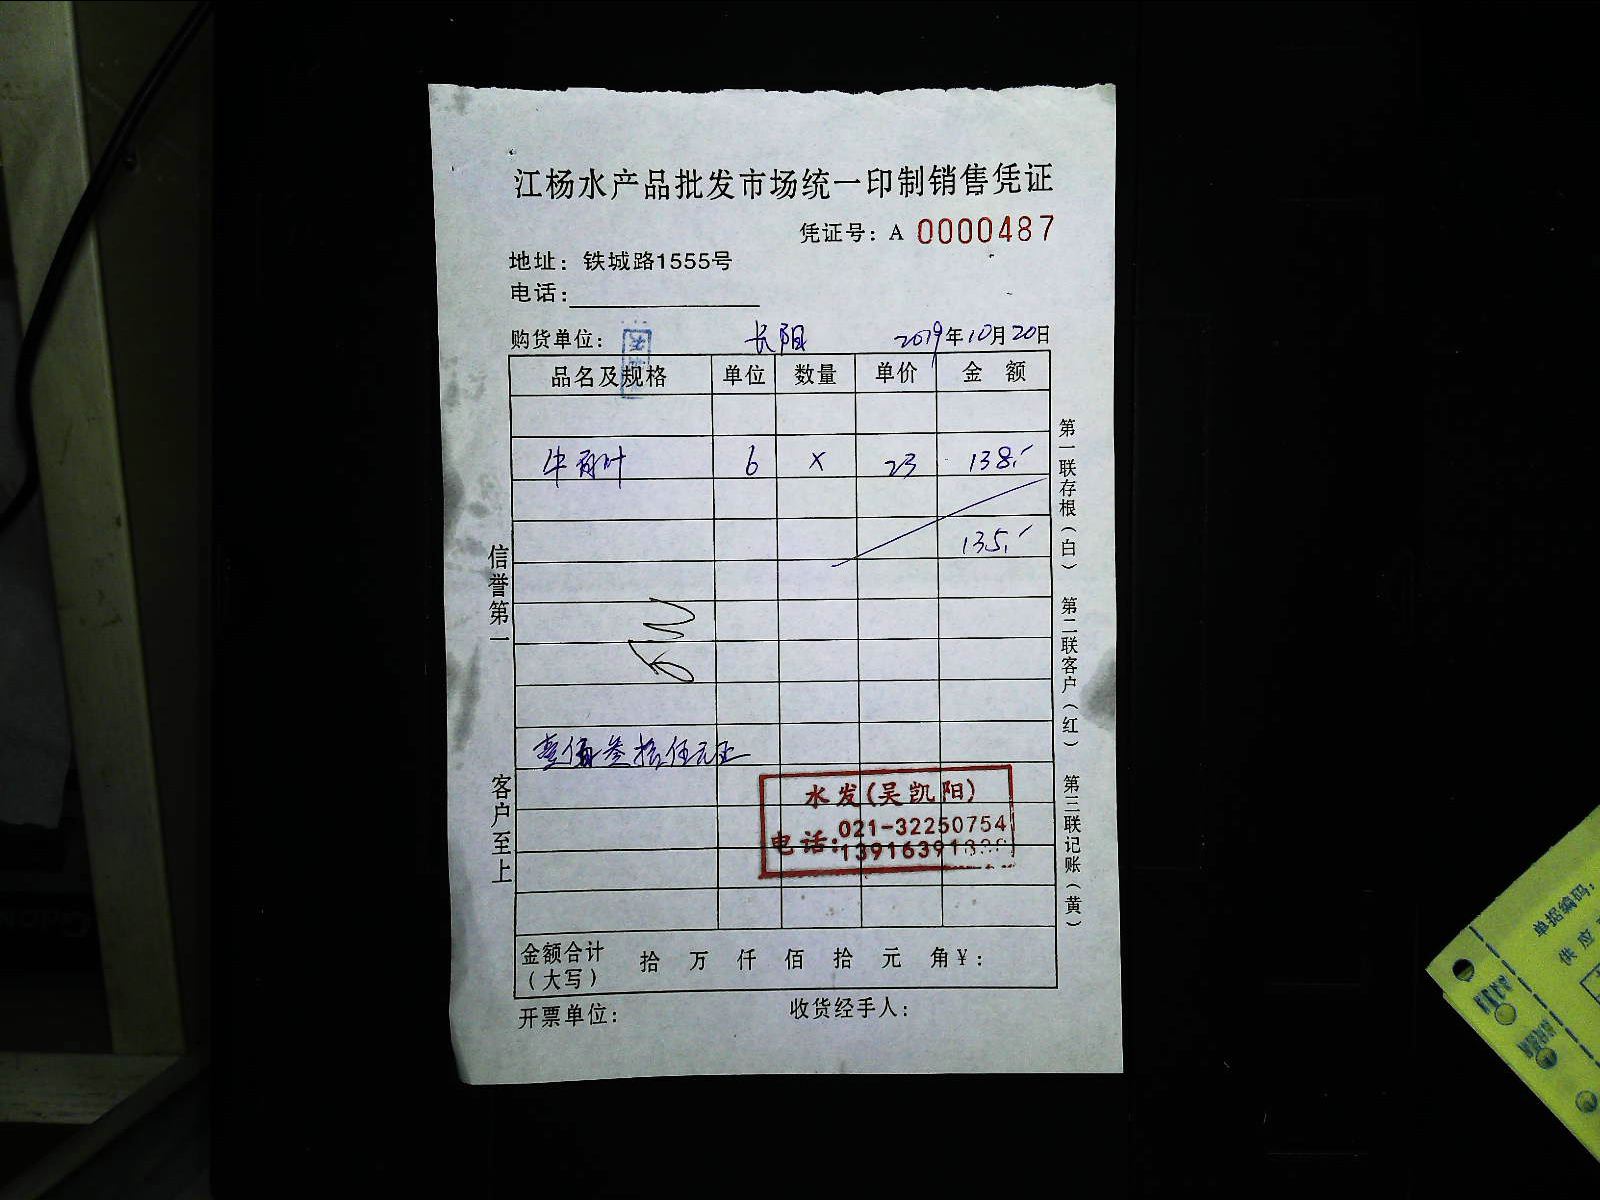 江杨水产品批发市场统一印制销售凭证
凭证号：A 0000487
地址：铁城路1555号
电话：
购货单位： 长阳 2019年10月20日
品名及规格 单位 数量 单价 金 额
牛百叶 6 X 23 138.-
135.-
壹佰叁拾伍元正
水发(吴凯阳)
电话：021-32250754
13916391
金额合计（大写） 拾 万 仟 佰 拾 元 角¥：
开票单位： 收货经手人：
信誉第一
客户至上
第一联存根（白）
第二联客户（红）
第三联记账（黄）
单据编码：
供应